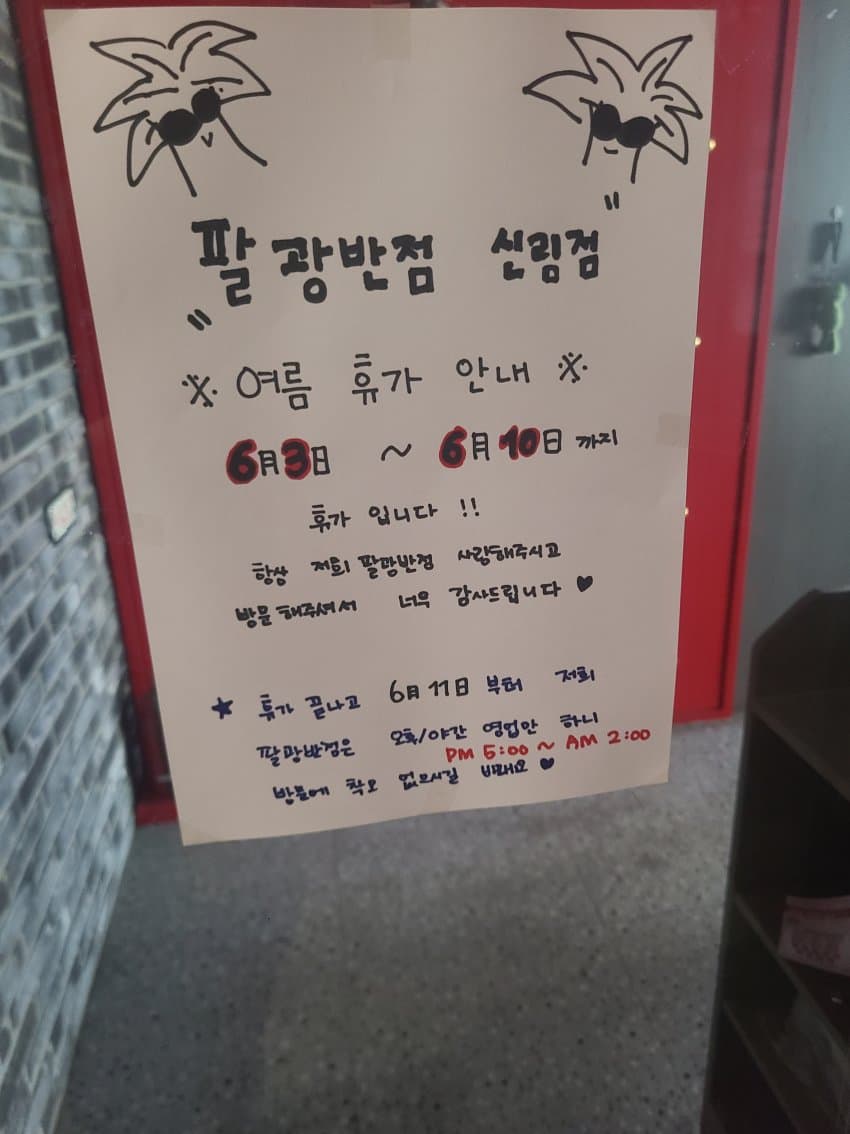 "팔광반점 신림점"
※ 여름 휴가 안내 ※
6月3日 ~ 6月10日 까지
휴가 입니다 !!
항상 저희 팔광반점 사랑해주시고
방문해주셔서 너무 감사드립니다 ♥
★ 휴가 끝나고 6月11日 부터 저희
팔광반점은 오후/야간 영업만 하니
PM 5:00 ~ AM 2:00
방문에 착오 없으시길 바래요 ♥